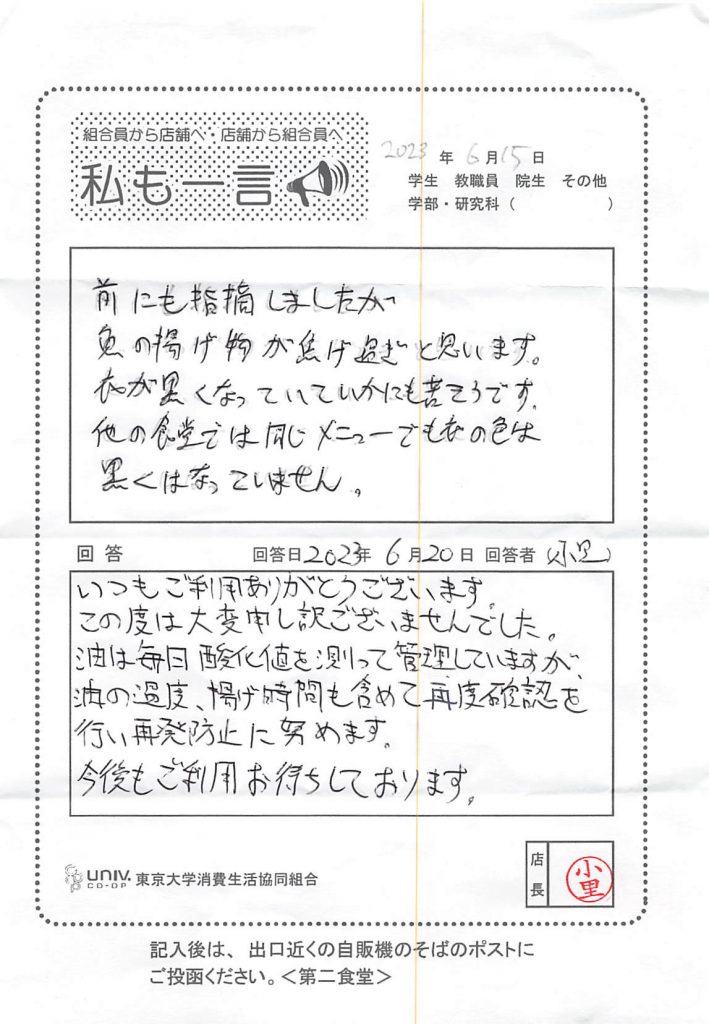 組合員から店舗へ・店舗から組合員へ
私も一言
2023 年 6月15日
学生 教職員 院生 その他
学部・研究科（ ）
前にも指摘しましたが
魚の揚げ物が焦げ過ぎと思います。
衣が黒くなっていていかにも苦そうです。
他の食堂では同じメニューでも衣の色は
黒くはなっていません。
回答 回答日2023年 6月20日 回答者（小里）
いつもご利用ありがとうございます。
この度は大変申し訳ございませんでした。
油は毎日酸化値を測って管理していますが、
油の温度、揚げ時間も含めて再度確認を
行い再発防止に努めます。
今後もご利用お待ちしております。
coop UNIV. CO-OP 東京大学消費生活協同組合
店長
小里
記入後は、出口近くの自販機のそばのポストに
ご投函ください。＜第二食堂＞